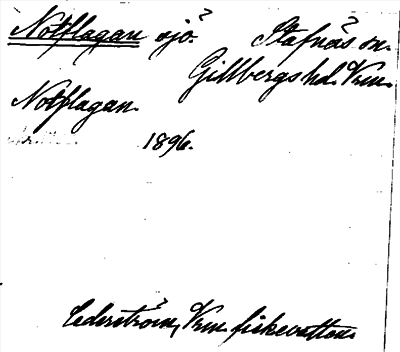 Notflagan sjö? Stafnäs sn.
Gillbergs hd. Vrm.
Notflagan.
1896.
Cederström, Vrm. fiskevatten.